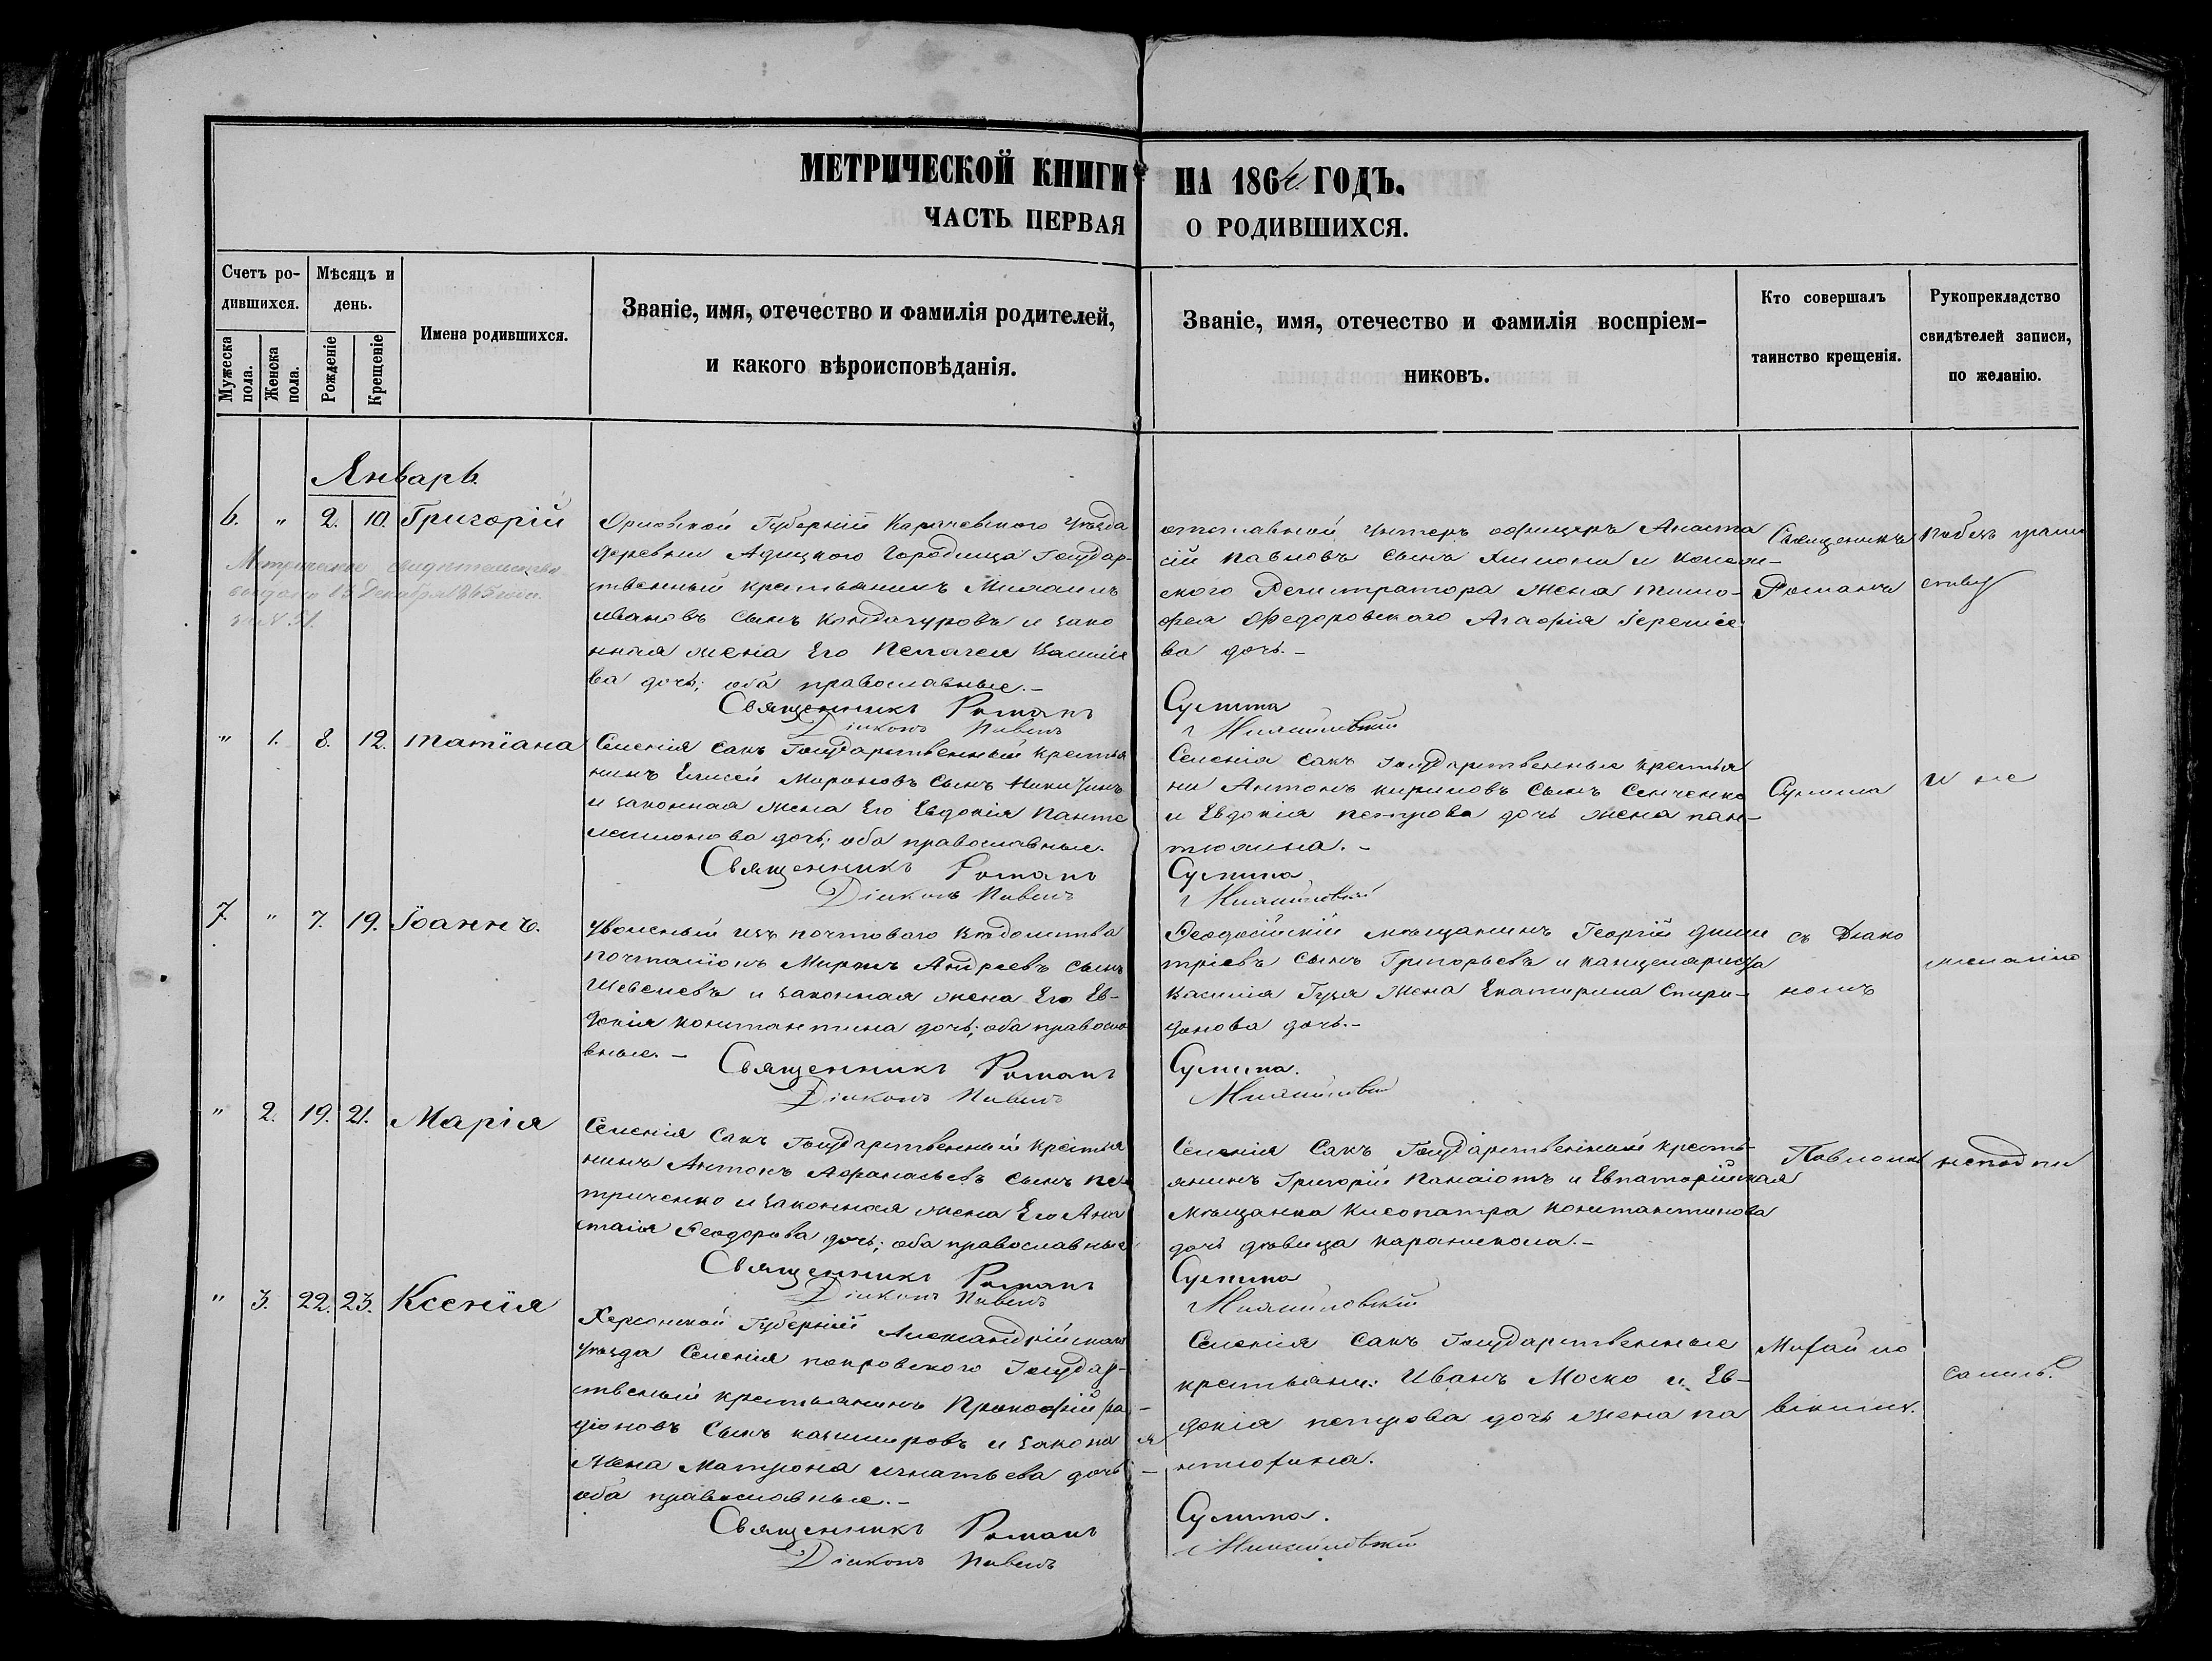 МЕТРИЧЕСКОЙ КНИГИ НА 1864. ГОДЪ.
ЧАСТЬ ПЕРВАЯ О РОДИВШИХСЯ.
Счетъ ро-
дившихся.
Мужеска пола.
Женска пола.
Мѣсяцъ и
день.
Рожденіе
Крещеніе
Имена родившихся.
Званіе, имя, отечество и фамилія родителей,
и какого вѣроисповѣданія.
Званіе, имя, отечество и фамилія воспріем-
никовъ.
Кто совершалъ
таинство крещенія.
Рукопрекладство
свидѣтелей записи,
по желанію.
Январь.
6. " 2. 10. Григорій
Метрическое свидѣтельство
выдано 13 Декабря 1865 года
за №
Орловской Губерніи Карачевского Уѣзда
деревни Городища Государ-
ственный крестьянинъ Михаилъ
ивановъ сынъ и зако
нная жена Его Пелагея Василіе
ва дочь; оба православные.-
Священникъ Романъ
Діаконъ Павелъ
отставной Унтеръ офицеръ Анаста
сій Павловъ сынъ и
ского Регистратора жена тимо-
фея Федоровского Агафія Іереміе
ва дочь.-
Сулима
Священникъ
Романъ
" 1. 8. 12. Татіана
Селенія Сакъ Государственный крестья
нинъ Елисей Мироновъ сынъ
и законная жена Его Евдокія Панте
леимонова дочь; оба православные.
Священникъ Романъ
Діаконъ Павелъ
Селенія Сакъ государственные крестья
не Антонъ кириловъ сынъ Сенченко
и Евдокія петрова дочь жена пан-
тюхина.-
Сулима
Сулима
и не
7. " 7. 19. Іоаннъ.
Уволеный изъ почтового вѣдомства
почталіонъ Миронъ Андреевъ сынъ
Шевелевъ и законная жена Его Ев-
докія константина дочь; оба правосла
вные.-
Священникъ Романъ
Діаконъ Павелъ
Феодосійскій мѣщанинъ Георгій дими
тріевъ сынъ Григорьевъ и канцеляриста
василія Гузя жена Екатерина Спири-
донова дочь.-
Сулима.
съ Діако
номъ
" 2. 19. 21. Марія
Селенія Сакъ Государственный крестья
нинъ Антонъ Афанасьевъ сынъ пе
триченко и законная жена Его Ана
стасія Феодорова дочь; оба православные
Священникъ Романъ
Діаконъ Павелъ
Селенія Сакъ Государственный кресть-
янинъ Григорій Панаіотъ и Евпаторійская
мѣщанка Клеопатра константинова
дочь дѣвица
Сулима
Павломъ
" 3. 22. 23. Ксенія
Херсонской Губерніи Александрійскаго
уѣзда Селенія покровского Государ-
ственый крестьянинъ Прокофій ра-
діоновъ сынъ и закона
я
жена Матрона игнатьева дочь -
оба православные.-
Священникъ Романъ
Діаконъ Павелъ
Селенія Сакъ Государственные
крестьяни: Иванъ Моско и Ев-
докія петрова дочь жена па
нтюхина.
Сулима.
Михайло